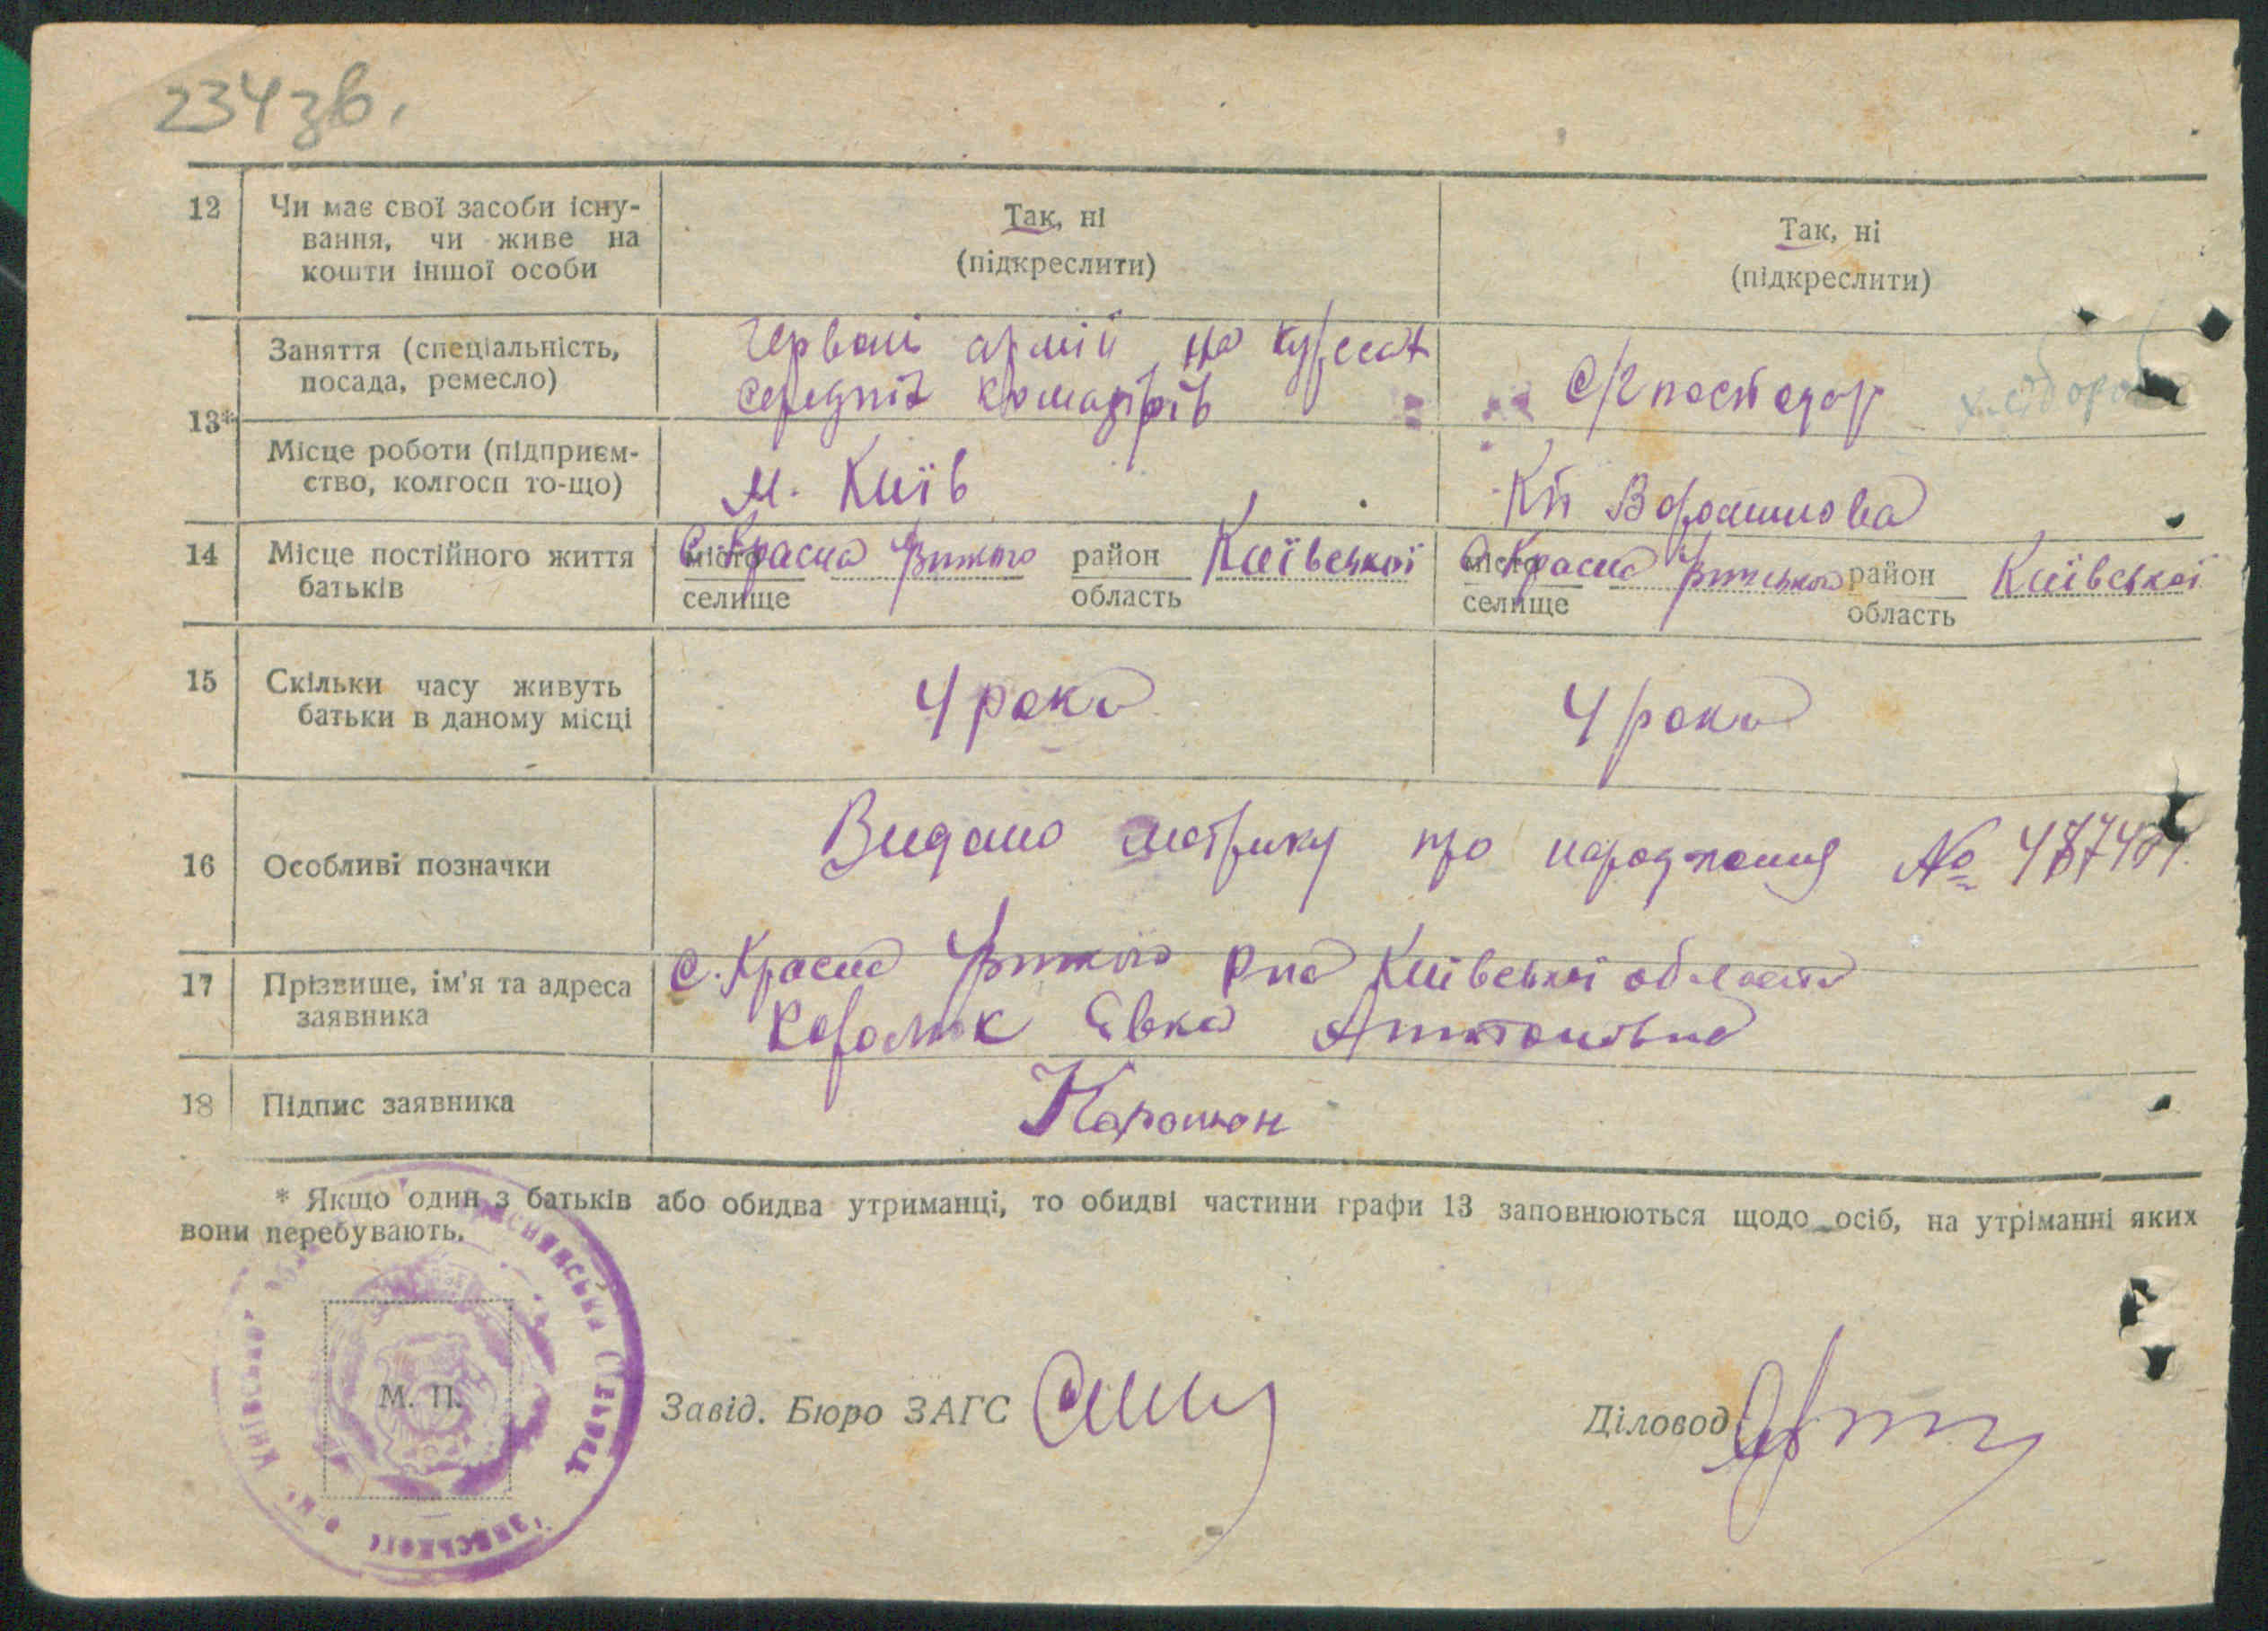 234зв.
12 Чи має свої засоби існу-
вання, чи живе на
кошти іншої особи
Так, ні
(підкреслити)
Так, ні
(підкреслити)
13*
Заняття (спеціальність,
посада, ремесло)
Червоній армії на курсах
середніх командирів
с/господар
хлібороб
Місце роботи (підприєм-
ство, колгосп то-що)
м. Київ
Кп Ворошилова
14 Місце постійного життя
батьків
місто
селище
с. Красна
район
область
Київської
місто
селище
с. Красна
район
область
Київської
15 Скільки часу живуть
батьки в даному місці
4 роки
4 роки
16 Особливі позначки
Видано метрику про народження №
17 Прізвище, ім'я та адреса
заявника
с. Красна р-на Київської області
Королюк Євка Антоновна
18 Підпис заявника
* Якщо один з батьків або обидва утриманці, то обидві частини графи 13 заповнюються щодо осіб, на утріманні яких
вони перебувають.
М. П.
Завід. Бюро ЗАГС
Діловод